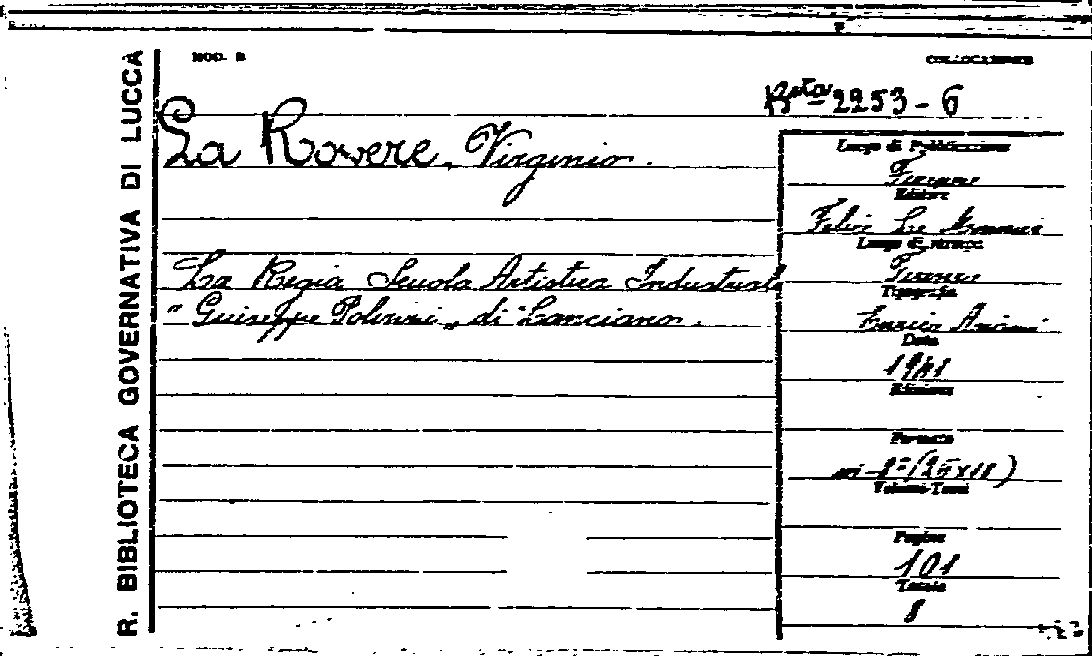 R. BIBLIOTECA GOVERNATIVA DI LUCCA
MOD. B
COLLOCAZIONE
Bta 2253 - 6
La Rovere, Virginio.
La Regia Scuola Artistica Industriale
"Giuseppe Polinari" di Lanciano.
Luogo di Pubblicazione
Firenze
Editore
Felice Le Monnier
Luogo di stampa
Firenze
Tipografia
Enrico Ariani
Data
1941
Edizione
Formato
in-8° (25x18)
Volumi-Tomi
Pagine
101
Tavole
8